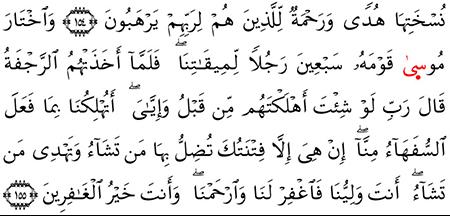 نُسْخَتِهَا هُدًى وَرَحْمَةٌ لِّلَّذِينَ هُمْ لِرَبِّهِمْ يَرْهَبُونَ ﴿١٥٤﴾ وَاخْتَارَ
مُوسَىٰ قَوْمَهُۥ سَبْعِينَ رَجُلًا لِّمِيقَاتِنَا ۖ فَلَمَّآ أَخَذَتْهُمُ الرَّجْفَةُ
قَالَ رَبِّ لَوْ شِئْتَ أَهْلَكْتَهُم مِّن قَبْلُ وَإِيَّايَ ۖ أَتُهْلِكُنَا بِمَا فَعَلَ
السُّفَهَآءُ مِنَّآ ۖ إِنْ هِيَ إِلَّا فِتْنَتُكَ تُضِلُّ بِهَا مَن تَشَآءُ وَتَهْدِى مَن
تَشَآءُ ۖ أَنتَ وَلِيُّنَا فَاغْفِرْ لَنَا وَارْحَمْنَا ۖ وَأَنتَ خَيْرُ الْغَافِرِينَ ﴿١٥٥﴾